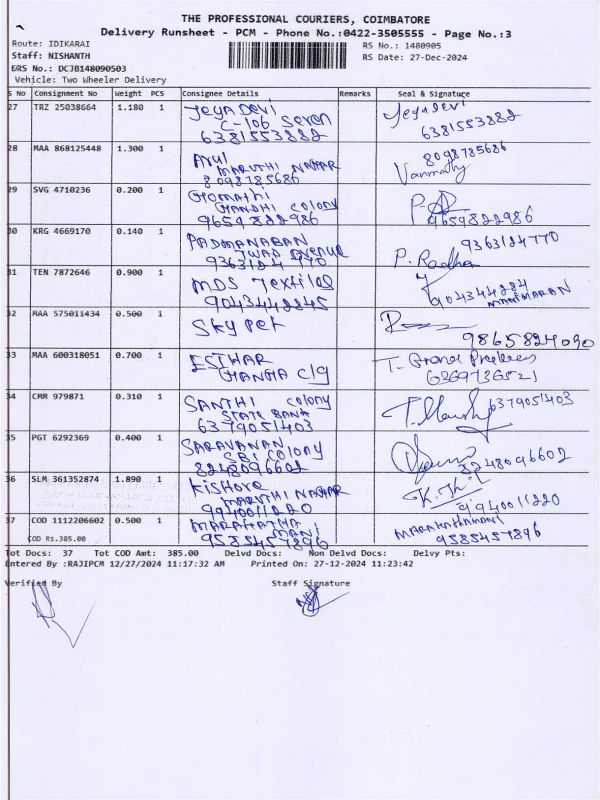 THE PROFESSIONAL COURIERS, COIMBATORE
Delivery Runsheet - PCM - Phone No.:0422-3505555 - Page No.:3
Route: IDIKARAI
RS No.: 1480905
Staff: NISHANTH
RS Date: 27-Dec-2024
ERS No.: DCJB148090503
Vehicle: Two Wheeler Delivery
S No Consignment No Weight PCS Consignee Details Remarks Seal & Signature
27 TRZ 25038664 1.180 1 Jeya Devi Jeyadevi
C-106 Seven
6381553882 6381553882
28 MAA 868125448 1.300 1 Arul 8098785686
MARUTHI NAGAR Vanmathy
8098785686
29 SVG 4710236 0.200 1 Gomathi
GANDHI Colony
9659822986 9659822986
30 KRG 4669170 0.140 1 PADMANABAN 9363124770
TWAD Avenue P. Radha
9363124770
31 TEN 7872646 0.900 1 MDS Textiles
9043442845 904344284
MANIMARAN
32 MAA 575011434 0.500 1 Sky Pet
9865824090
33 MAA 600318051 0.700 1 ESTHAR
GANGA C/G 6369736521
34 CMM 979871 0.310 1 SANTHI Colony 6379051403
STATE BANK
6379051403
35 PGT 6292369 0.400 1 SARAVANAN
SBI Colony
8248096602 8248096602
36 SLM 361352874 1.890 1 Kishore
MARUTHI NAGAR
9940011220 9940011220
37 COD 1112206602 0.500 1 MARAKATHA
MANI
COD Rs.385.00 9585457896 9585457896
Tot Docs: 37 Tot COD Amt: 385.00 Delvd Docs: Non Delvd Docs: Delvy Pts:
Entered By :RAJIPCM 12/27/2024 11:17:32 AM Printed On: 27-12-2024 11:23:42
Verified By Staff Signature